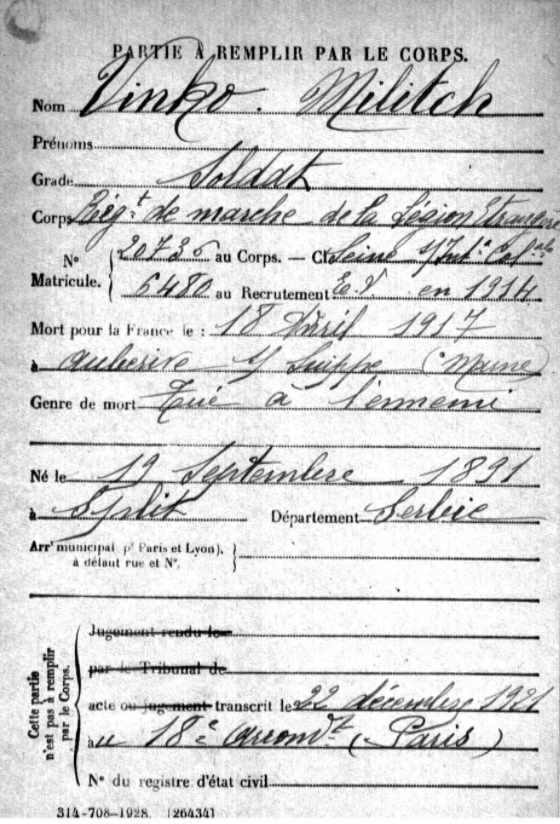 PARTIE À REMPLIR PAR LE CORPS.
Nom Vinko. Militch
Prénoms
Grade Soldat
Corps Régt de marche de la Légion Etrangère
N° Matricule. 20735 au Corps. — Cl Seine
6480 au Recrutement E.V en 1914
Mort pour la France le : 18 Avril 1917
à Auberive s/ Suippe (Marne)
Genre de mort Tué à l'ennemi
Né le 19 Septembre 1891
à Split Département Serbie
Arrt municipal (pr Paris et Lyon),
à défaut rue et N°.
Cette partie n'est pas à remplir par le Corps.
Jugement rendu le
par le Tribunal de
acte ou jugement transcrit le 22 décembre 1921
au 18e arromdt (Paris)
N° du registre d'état civil
314-708-1928. [26434]